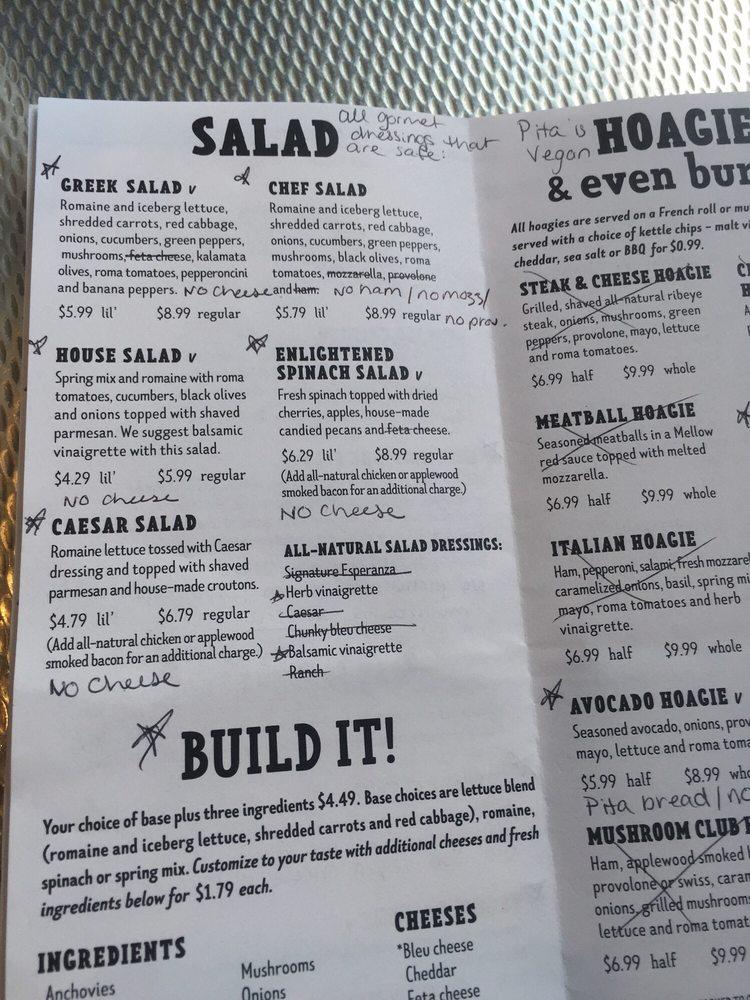 SALAD
all gormet
dressings that
are safe:
GREEK SALAD V
Romaine and iceberg lettuce,
shredded carrots, red cabbage,
onions, cucumbers, green peppers,
mushrooms, feta cheese, kalamata
olives, roma tomatoes, pepperoncini
and banana peppers.
NO Cheese
$5.99 lil' $8.99 regular
CHEF SALAD
Romaine and iceberg lettuce,
shredded carrots, red cabbage,
onions, cucumbers, green peppers,
mushrooms, black olives, roma
tomatoes, mozzarella, provolone
and ham.
NO ham / no mozz/
no prov.
$5.79 lil' $8.99 regular
HOUSE SALAD V
Spring mix and romaine with roma
tomatoes, cucumbers, black olives
and onions topped with shaved
parmesan. We suggest balsamic
vinaigrette with this salad.
$4.29 lil' $5.99 regular
NO Cheese
ENLIGHTENED
SPINACH SALAD V
Fresh spinach topped with dried
cherries, apples, house-made
candied pecans and feta cheese.
$6.29 lil' $8.99 regular
(Add all-natural chicken or applewood
smoked bacon for an additional charge.)
NO Cheese
CAESAR SALAD
Romaine lettuce tossed with Caesar
dressing and topped with shaved
parmesan and house-made croutons.
$4.79 lil' $6.79 regular
(Add all-natural chicken or applewood
smoked bacon for an additional charge.)
NO Cheese
ALL-NATURAL SALAD DRESSINGS:
Signature Esperanza
Herb vinaigrette
Caesar
Chunky bleu cheese
Balsamic vinaigrette
Ranch
BUILD IT!
Your choice of base plus three ingredients $4.49. Base choices are lettuce blend
(romaine and iceberg lettuce, shredded carrots and red cabbage), romaine,
spinach or spring mix. Customize to your taste with additional cheeses and fresh
ingredients below for $1.79 each.
INGREDIENTS
Anchovies
Mushrooms
Onions
CHEESES
*Bleu cheese
Cheddar
Feta cheese
Pita is
Vegan
HOAGIE
& even bur
All hoagies are served on a French roll or mu
served with a choice of kettle chips – malt vi
cheddar, sea salt or BBQ for $0.99.
STEAK & CHEESE HOAGIE
Grilled, shaved all-natural ribeye
steak, onions, mushrooms, green
peppers, provolone, mayo, lettuce
and roma tomatoes.
$6.99 half $9.99 whole
MEATBALL HOAGIE
Seasoned meatballs in a Mellow
red sauce topped with melted
mozzarella.
$6.99 half $9.99 whole
ITALIAN HOAGIE
Ham, pepperoni, salami, fresh mozzarel
caramelized onions, basil, spring mi
mayo, roma tomatoes and herb
vinaigrette.
$6.99 half $9.99 whole
AVOCADO HOAGIE V
Seasoned avocado, onions, prov
mayo, lettuce and roma toma
$5.99 half $8.99 who
Pita bread / no
MUSHROOM CLUB
Ham, applewood smoked
provolone or swiss, caram
onions, grilled mushrooms
lettuce and roma tomat
$6.99 half $9.99